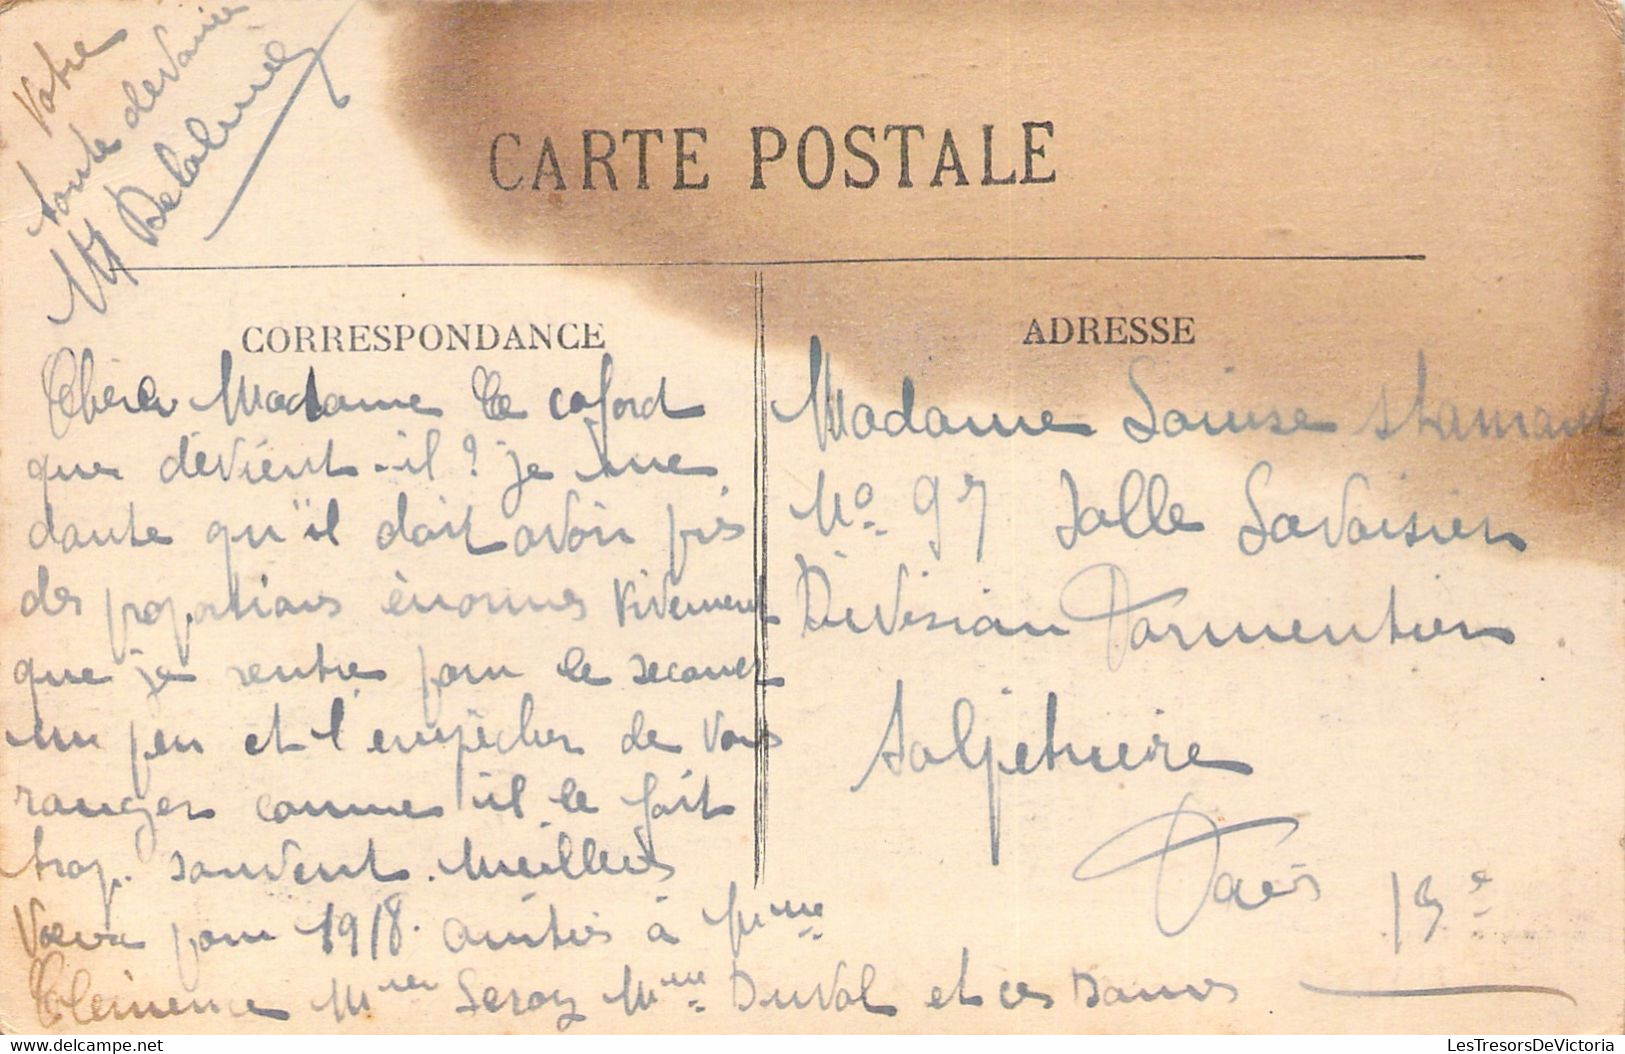 CARTE POSTALE
CORRESPONDANCE
ADRESSE
Chère Madame Ce cafard
que devient-il ? je me
doute qu'il doit avoir pris
des proportions ènormes Vivement
que je rentre pour le secouer
un peu et l'empêcher de vous
ranger comme il le fait
trop. souvent. Meilleurs
Voeux pour 1918. amitiés à Mme
Clémence Mmes Leroy Mme Duval et ces dames
Votre
toute devouée
M Delalme
Madame Louise
No. 97 Salle Lavoisier
Division Parmentier
Salpetrière
Paris 13e
LesTresorsDeVictoria.com
LesTresorsDeVictoria